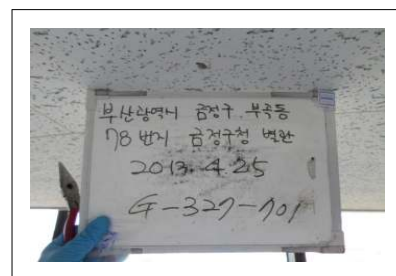 부산광역시 금정구 부곡동
78 번지 금정구청 별관
2013. 4. 25
G-327-701